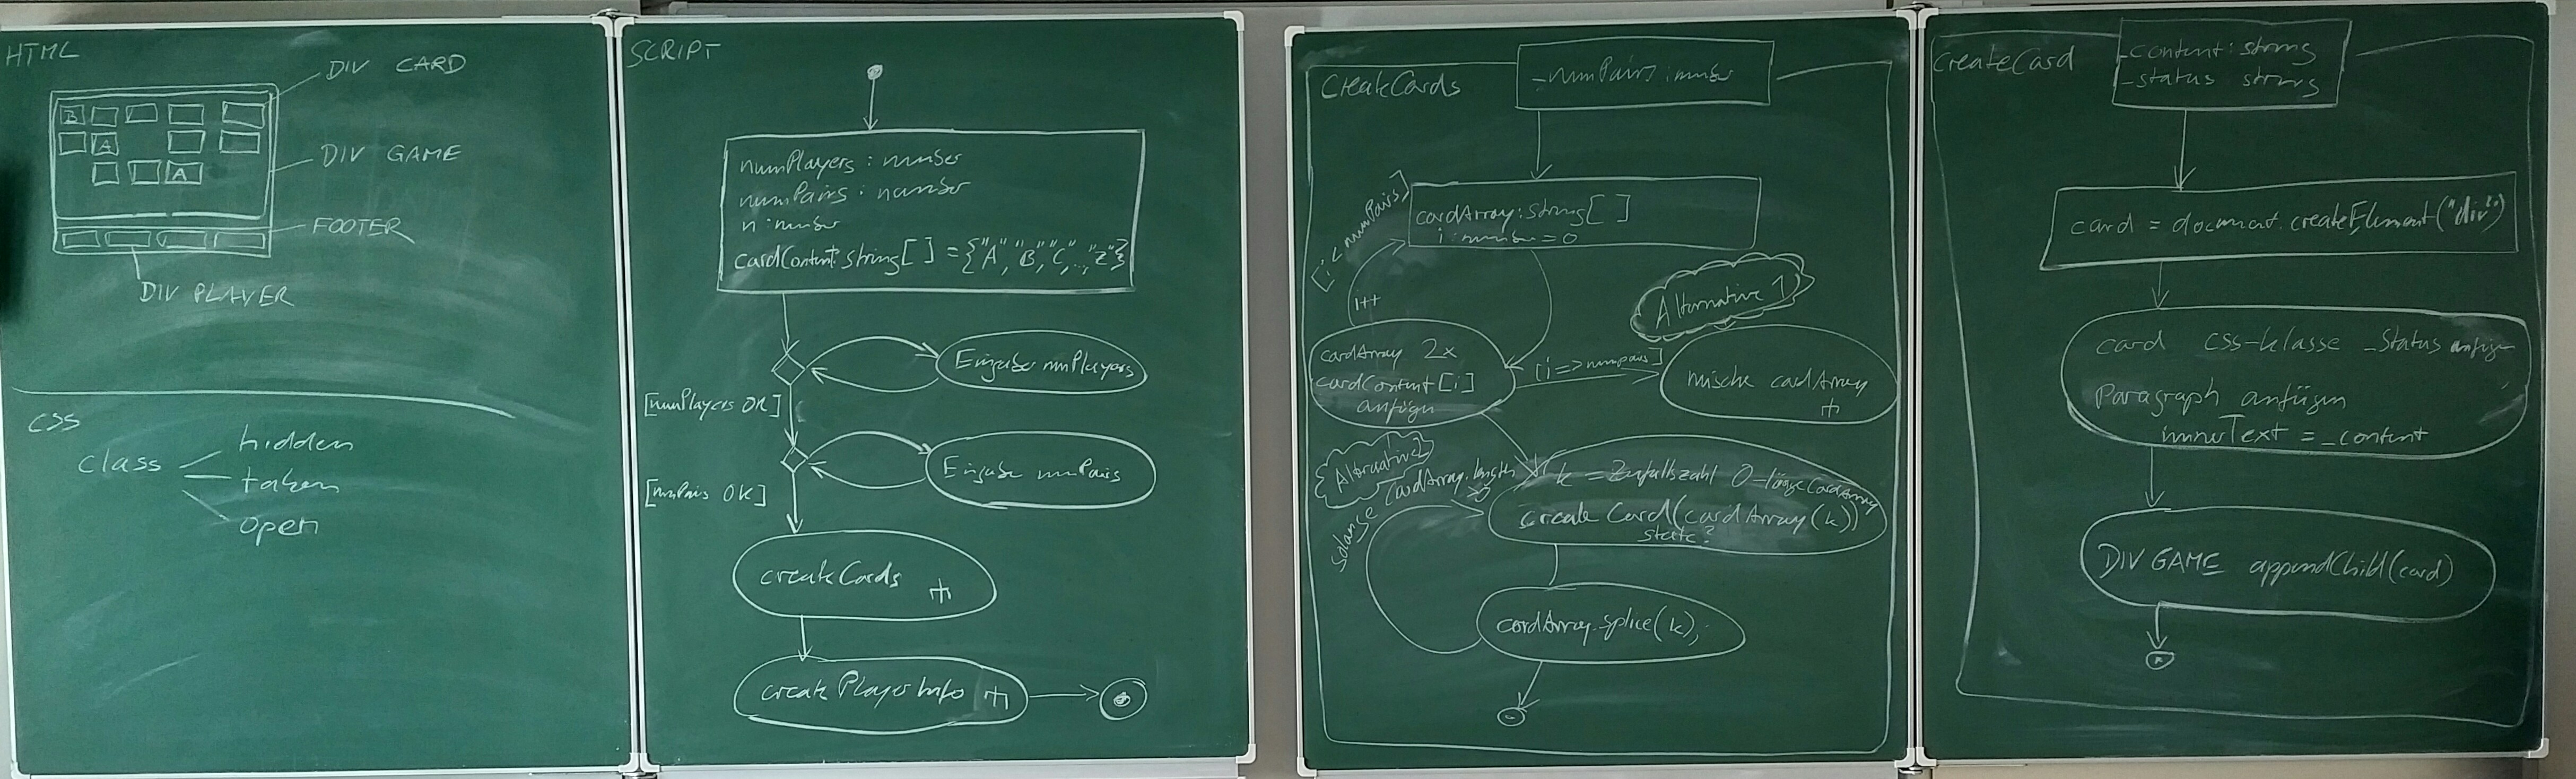 HTML
DIV CARD
B
A
A
DIV GAME
FOOTER
DIV PLAYER
CSS
class
hidden
taken
open
SCRIPT
numPlayers : number
numPairs : number
n : number
cardContent : string [ ] = {"A", "B", "C", .., "Z"}
Eingabe numPlayers
[numPlayers OK]
Eingabe numPairs
[numPairs OK]
createCards
create PlayerInfo
CreateCards
_numPairs : number
[i < numPairs]
cardArray : string [ ]
i : number = 0
i++
Alternative 1
cardArray 2x
cardContent [i]
anfügen
[i => numpairs]
mische cardArray
Alternative 2
solange cardArray.length > 0
k = Zufallszahl 0 - länge CardArray
create Card (cardArray (k))
state?
cardArray.splice(k);
CreateCard
_content : string
_status string
card = document.createElement("div")
card css-klasse _status anfügen
Paragraph anfügen
innerText = _content
DIV GAME appendChild (card)